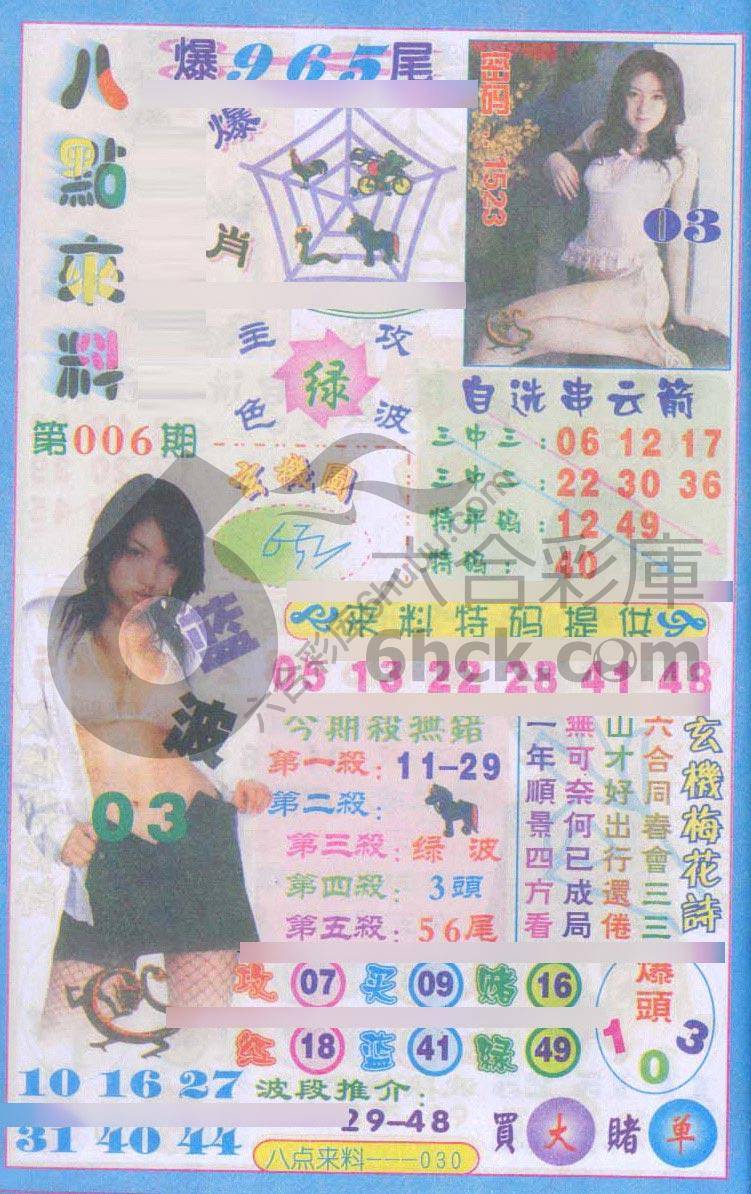 八點來料
爆965尾
爆肖
密码:1523
03
主攻
绿
色波
第006期
玄機圖
自选串云箭
三中三:06 12 17
三中二:22 30 36
特平码:12 49
特码:40
六合彩庫
6hck.com
来料特码提供
05 13 22 28 41 48
蓝波
03
今期殺無錯
第一殺:11-29
第二殺:
第三殺:绿波
第四殺:3頭
第五殺:56尾
玄機梅花詩
六合同春會三三
山才好出行還倦
無可奈何已成局
一年順景四方看
攻 07 买 09 赌 16
红 18 蓝 41 绿 49
爆頭
1 0 3
10 16 27
31 40 44
波段推介:
29-48
買大賭单
八点来料---030